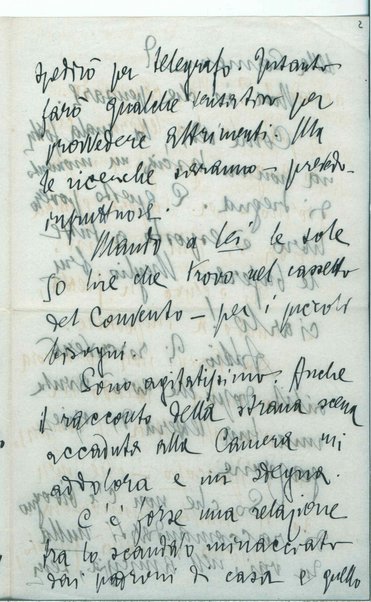 2
spedirò per telegrafo. Intanto
farò qualche tentativo per
provvedere altrimenti. Ma
le ricerche saranno – prevedo –
infruttuose.
Mando a Lei le sole
50 lire che trovo nel cassetto
del Convento – per i piccoli
bisogni.
Sono agitatissimo. Anche
il racconto della strana scena
accaduta alla Camera mi
addolora e mi sdegna.
C'è forse una relazione
tra lo scandalo minacciato
dai padroni di casa e quello